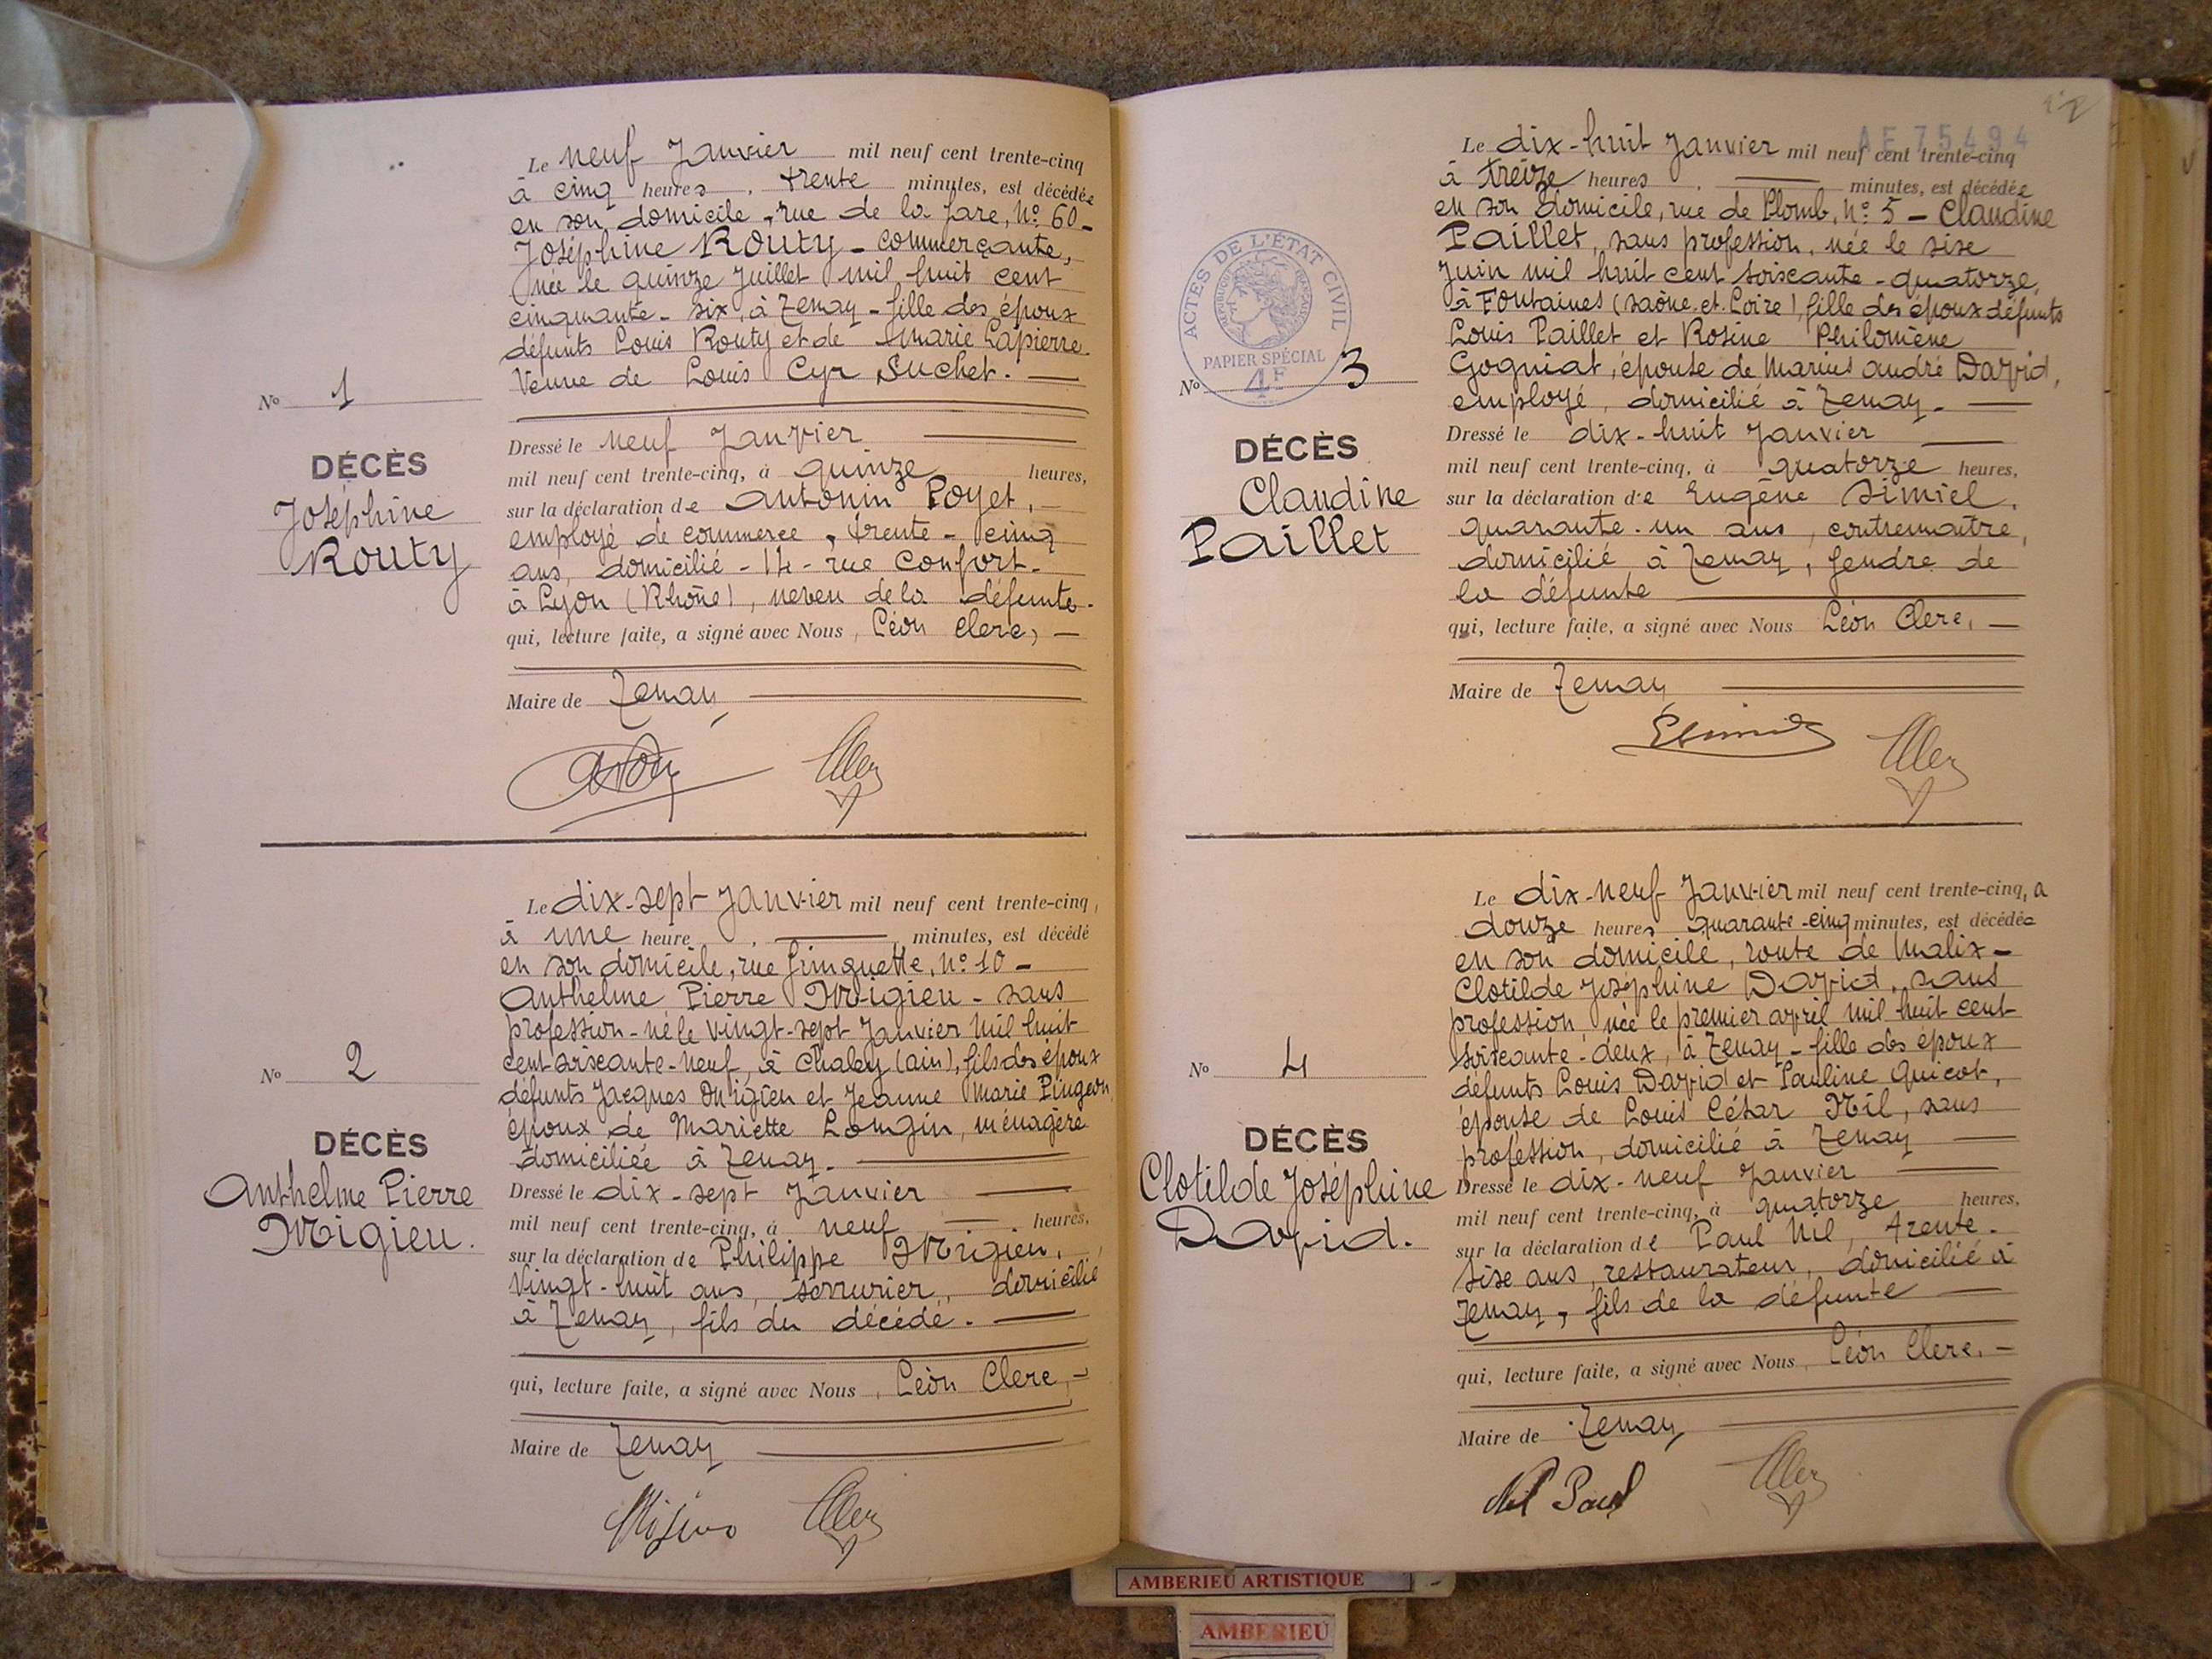 Le neuf Janvier mil neuf cent trente-cinq
à cinq heures, trente minutes, est décédée
en son domicile, rue de la Gare, No 60 -
Joséphine Routy - commerçante,
née le quinze Juillet mil huit cent
cinquante - six, à Tenay - fille des époux
défunts Louis Routy et de Marie Lapierre.
Veuve de Louis Cyr Suchet. —
No 1
DÉCÈS
Joséphine
Routy
Dressé le neuf Janvier
mil neuf cent trente-cinq, à quinze heures,
sur la déclaration de Antonin Poyet, —
employé de commerce, trente - cinq
ans, domicilié - 14 - rue Confort -
à Lyon (Rhône), neveu de la défunte.
qui, lecture faite, a signé avec Nous, Léon Clerc, —
Maire de Tenay
Le dix-sept Janvier mil neuf cent trente-cinq,
à une heure, — minutes, est décédé
en son domicile, rue Guinguette, No 10 -
Anthelme Pierre Migieu - sans
profession - né le vingt-sept Janvier mil huit
cent soixante-neuf, à Chaley (Ain), fils des époux
défunts Jacques Migieu et Jeanne Marie Pingeon,
époux de Mariette Longin, ménagère
domiciliée à Tenay. —
No 2
DÉCÈS
Anthelme Pierre
Migieu.
Dressé le dix-sept Janvier
mil neuf cent trente-cinq, à neuf — heures,
sur la déclaration de Philippe Migieu,
vingt-huit ans, serrurier, domicilié
à Tenay, fils du décédé. —
qui, lecture faite, a signé avec Nous, Léon Clerc, -
Maire de Tenay
Migieu
AE 75494
Le dix-huit Janvier mil neuf cent trente-cinq
à treize heures, — minutes, est décédée
en son domicile, rue de Plomb, No 5 - Claudine
Paillet, sans profession, née le six
Juin mil huit cent soixante-quatorze,
à Fontaines (Saône et Loire), fille des époux défunts
Louis Paillet et Rosine Philomène
Gogniat, épouse de Marius André David,
employé, domicilié à Tenay. —
ACTES DE L'ÉTAT CIVIL
RÉPUBLIQUE FRANÇAISE
PAPIER SPÉCIAL
4F
No 3
DÉCÈS
Claudine
Paillet
Dressé le dix-huit Janvier
mil neuf cent trente-cinq, à quatorze heures,
sur la déclaration de Eugène Simiel,
quarante-un ans, contremaître,
domicilié à Tenay, gendre de
la défunte
qui, lecture faite, a signé avec Nous Léon Clerc, —
Maire de Tenay
Le dix-neuf Janvier mil neuf cent trente-cinq, à
douze heures quarante-cinq minutes, est décédée
en son domicile, route de Malix -
Clotilde Joséphine David, sans
profession, née le premier avril mil huit cent
soixante-deux, à Tenay - fille des époux
défunts Louis David et Pauline Quicot,
épouse de Louis César Nil, sans
profession, domicilié à Tenay —
No 4
DÉCÈS
Clotilde Joséphine
David.
Dressé le dix-neuf Janvier
mil neuf cent trente-cinq, à quatorze heures,
sur la déclaration de Paul Nil, trente-
six ans, restaurateur, domicilié à
Tenay, fils de la défunte —
qui, lecture faite, a signé avec Nous, Léon Clerc. -
Maire de Tenay
Nil Paul
AMBERIEU ARTISTIQUE
AMBERIEU